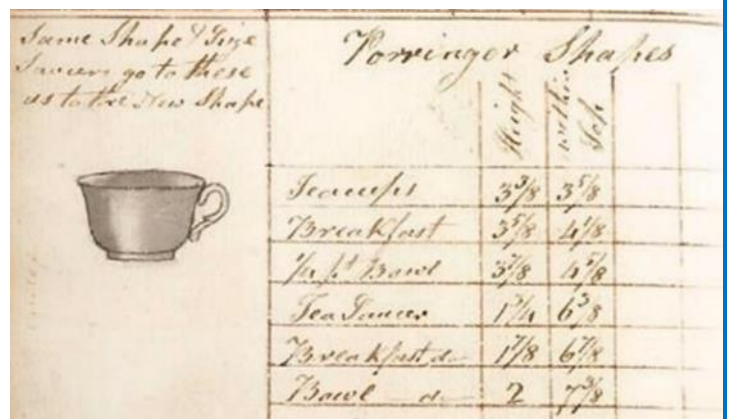 Same Shape & Size
Saucers go to these
as to the New Shape
Porringer Shapes
Height
within
Top
Teacups 3 3/8 3 5/8
Breakfast 3 5/8 4 1/8
pt Bowl 3 7/8 4 5/8
Tea Saucer 1 3/4 6 3/8
Breakfast do 1 7/8 6 7/8
Bowl do 2 7 3/8